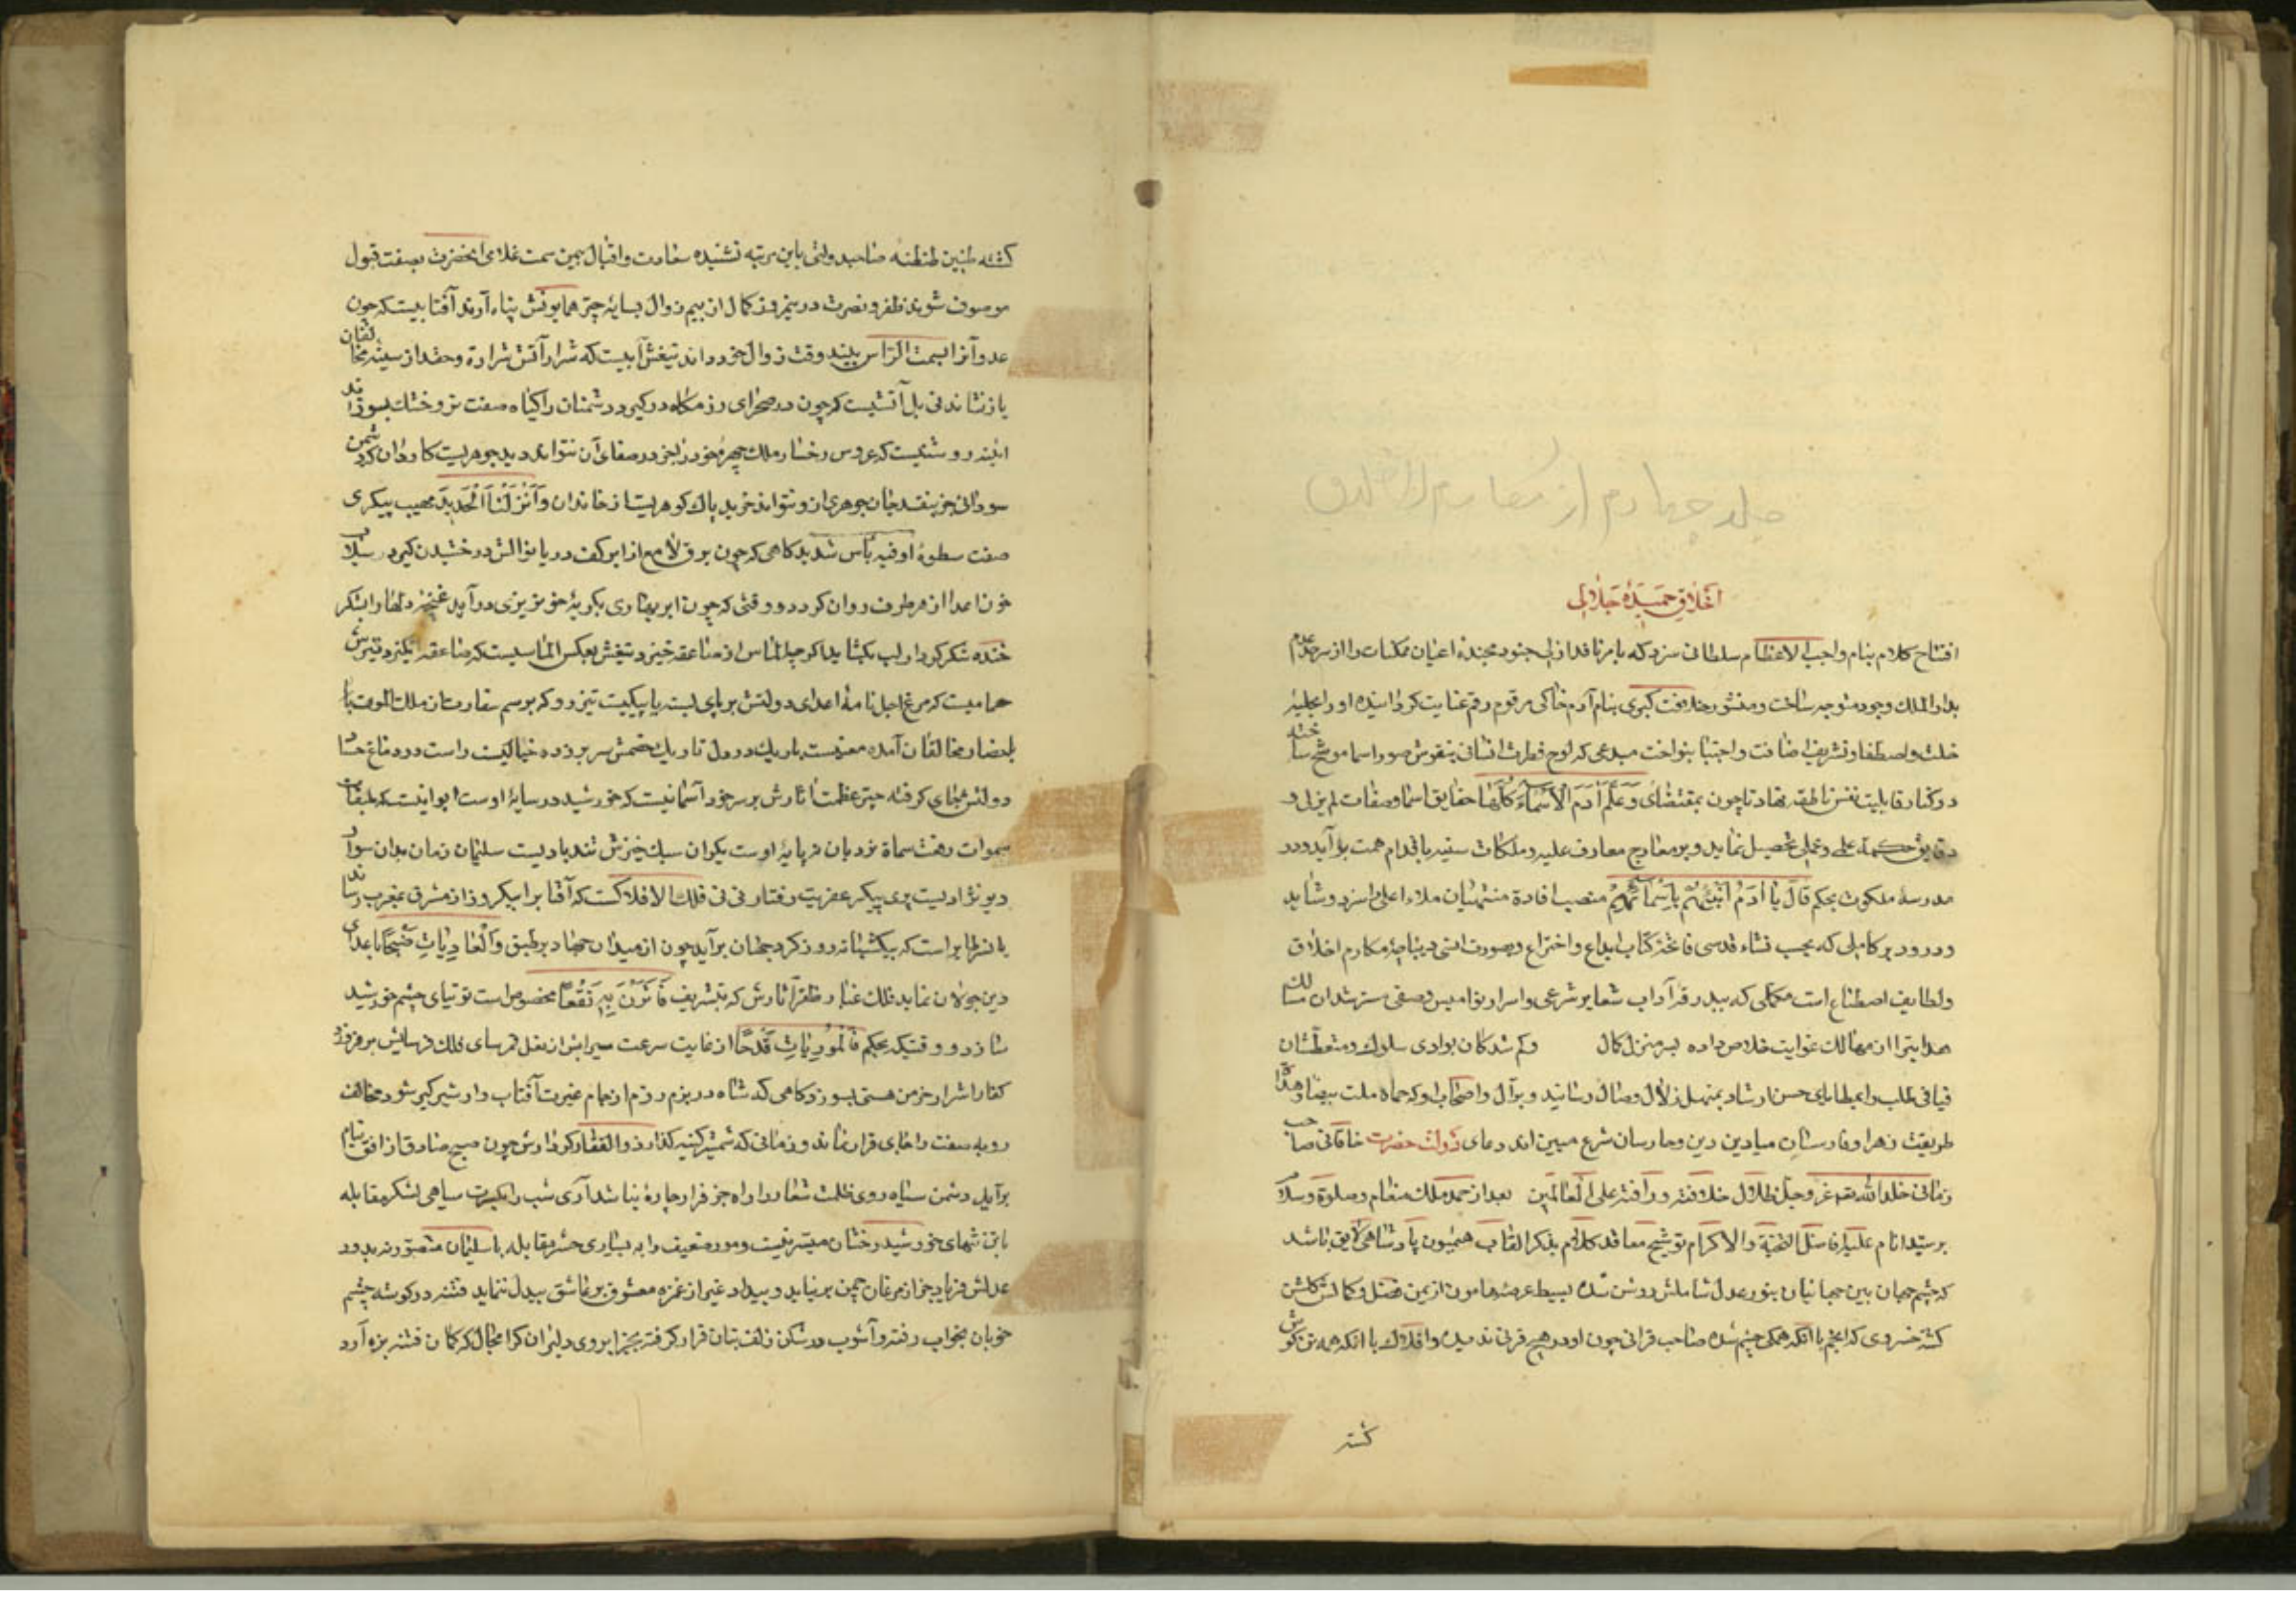 جلد چهارم از مکارم الاخلاق
اخلاق حمیدهٔ جلالی
افتتاح کلام بنام واجب الاعظام سلطانی سزد که بامر نافذ ازلی جنود مجندهٔ اعیان ممکنات را از سرحد عدم
بدار الملک وجود متوجه ساخت و منشور خلافت کبری بنام آدم خاکی مرقوم رقم عنایت کردانیده او را بحلیهٔ
خلت و اصطفا و تشریف اضافت و اجتبا بنواخت مبدعی که لوح فطرت انسانی بنقوش صور اسما موشح ساخته
در کنار قابلیت نفس ناطقه نهاد تا چون بمقتضای وَعَلَّمَ آدَمَ الْاَسْمَاءَ كُلَّهَا حقایق اسما و صفات لم یزلی و
دقایق حکمة علمی و عملی تحصیل نماید و بر معارج معارف علیه و ملکات سنیه باقدام همت برآید و در
مدرسهٔ ملکوت بحکم قَالَ يَا آدَمُ اَنْبِئْهُمْ بِاَسْمَائِهِمْ منصب افادة منتهیان ملاء اعلی را سزد و شاید
و درود بر کاملی که بحسب نشاء قدسی فاتحهٔ کتاب ابداع و اختراع و بصورت انسی دیباچهٔ مکارم اخلاق
و لطایف اصطناع است مکملی که ببدرقهٔ آداب شعایر شرعی و اسرار نوامیس وصفی مسترشدان مسالک
هدایترا از مهالک غوایت خلاص داده بسر منزل کمال و کم شدکان بوادی سلوک و متعطشان
فیافی طلب را بمطایای حسن ارشاد بمنهل زلال وصال رسانید و بر آل و اصحاب او که حماة ملت بیضا و هداة
طریقت زهرا و فارسان میادین دین و حارسان شرع مبین اند دعای دولت حضرت خاقانی صاحب
زمانی خلد الله عز وجل ظلال خلافته و رافته علی العالمین بعد از حمد ملک منعام و صلوة و سلام
بر سید انام علیه افاضل التحیة والاکرام توشیح معاقد کلام بذکر القاب همیون پادشاهی لایق باشد
که چشم جهان بین جهانیان بنور عدل شاملش روشن شده بسیط عرصهٔ هامون از یمن فضل و کمالش کلشن
کشته خسروی که انجم با آنکه همکی چشم شده صاحب قرانی چون او در هیچ قرنی ندیده و افلاک با آنکه همه تن کوش
کشته
کشته طنین طنطنهٔ صاحبدولتی باین مرتبه نشنیده سعادت و اقبال بیمن سمت غلامی آنحضرت بصفت قبول
موصوف شوند ظفر و نصرت در نیمروز کمال از بیم زوال بسایهٔ چتر همایونش پناه آرند آفتابیست که چون
عدو آنرا بسمت الرأس بیند وقت زوال خود داند تیغش آبیست که شرار آتش شرارة و حقد از سینهٔ مخالفان
باز نشاند نی بل آتشیست که چون در صحرای رزمگاه در کیرد دشمنان را کیاه صفت تر و خشک بسوزاند
آینهٔ روشنیست که عروس رخسار ملک چهرهٔ خود را بجز در صفای آن نتواند دید جوهریست کاردان که دشمن
سودائی جز بنقد جان جوهری ازو نتواند خرید پاک کوهریست از خاندان وَاَنْزَلْنَا الْحَدِيدَ مهیب پیکری
صفت سطوة او فیه بأس شدید کاهی که چون برق لامع از ابر کف دریا نوالش درخشیدن کیرد سیلاب
خون اعدا از هر طرف روان کردد و وقتی که چون ابر بهاری بکریهٔ خونریزی درآید غنچهٔ دلها را بشکر
خنده شکر کوید و لب بکشاید اکر چه الماس از صاعقه خیزد تیغش بعکس الماسیست که صاعقه انکیزد تیرش
حمامیست که مرغ اجل نامهٔ اعدای دولتش بر پای بسته یا پیکیست تیز رو که برسم سفارت از ملک الموت با
احضار مخالفان آمده معنیست باریک در دل تاریک خصمش سر بر زده خیالیست راست در دماغ حساد
دولتش جای کرفته چتر عظمت آثارش بر سر خود آسمانیست که خورشید در سایهٔ اوست ایوانیست که طبقات
سموات رفعت سماة نردبان نه پایهٔ اوست یکران سبک خیزش تند بادیست سلیمان زمان بدان سوار
دیو نژادیست پری پیکر عفریت رفتار نی نی فلک الافلاکست که آفتابرا بیکروز از مشرق بمغرب رساند
یا نسر طایر است که بیکشبانه روز کرد جهان برآید چون از میدان جهاد بر طبق وَالْعَادِيَاتِ ضَبْحًا با اعدای
دین جولان نماید فلک غبار ظفر آثارش که بتشریف فَاَثَرْنَ بِهِ نَقْعًا مخصوص است توتیای چشم خورشید
سازد و وقتیکه بحکم فَالْمُورِيَاتِ قَدْحًا از غایت سرعت سیر آتش از نعل قمرسای فلک فرسایش بر فروزد
کفار اشرار خرمن هستی بسوزد کاهی که شاه در بزم رزم از نیام غیرت آفتاب وار شیر کیر شود مخالف
روبه صفت را جای قرار نماند و زمانی که شمشیر کینه کذار ذو الفقار کردارش چون صبح صادق از افق نیام
برآید دشمن سیاه روی ظلمت شعار را راه جز فرار چارهٔ نباشد آری شب را بکثرت سیاهی لشکر مقابله
با تیغ های خورشید رخشان میسر نیست و مور ضعیف را به بسیاری حشر مقابله با سلیمان متصور نه بدور
عدلش فریاد جز از مرغان چمن برنیاید و بیداد غیر از غمزه معشوق بر عاشق بیدل ننماید فتنه در کوشه چشم
خوبان بخواب رفته و آشوب در شکن زلف بتان قرار کرفته بجز ابروی دلبران کرا مجال که کمان فتنه بزه آرد